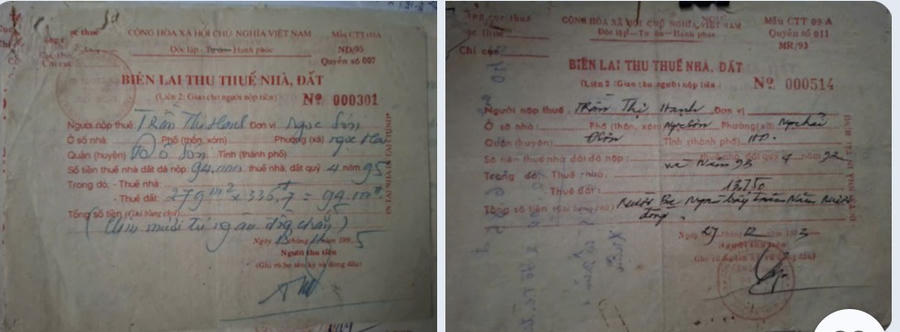 CỘNG HÒA XÃ HỘI CHỦ NGHĨA VIỆT NAM
Mẫu CTT 09A
Độc lập - Tự do - Hạnh phúc
NĐ/95
Quyển số 007
BIÊN LAI THU THUẾ NHÀ, ĐẤT
(Liên 2: Giao cho người nộp tiền)
Nº 000301
Người nộp thuế: Trần Thị Hạnh Đơn vị Ngọc Sơn
Ở số nhà: Phố (thôn, xóm) Phường (xã) Ngọc Hải
Quận (huyện) Đồ Sơn Tỉnh (thành phố)
Số tiền thuế nhà đất đã nộp: 94.000 thuế nhà, đất quý 4 năm 95
Trong đó: - Thuế nhà:
- Thuế đất: 279m² x 336,7 = 94.000
Tổng số tiền (Ghi bằng chữ)
(Chín mươi tư ngàn đồng chẵn)
Ngày 13 tháng 11 năm 1995
Người thu tiền
(Ghi rõ họ tên ký và đóng dấu)
CỘNG HÒA XÃ HỘI CHỦ NGHĨA VIỆT NAM
Mẫu CTT 09A
Độc lập - Tự do - Hạnh phúc
Quyển số 011
Chi cục
MR/93
BIÊN LAI THU THUẾ NHÀ, ĐẤT
(Liên 2: Giao cho người nộp tiền)
Nº 000514
Người nộp thuế: Trần Thị Hạnh Đơn vị
Ở số nhà: Phố (thôn, xóm) Ngọc Sơn Phường (xã) Ngọc Hải
Quận (huyện) Đồ Sơn Tỉnh (thành phố) HP.
Số tiền thuế nhà đất đã nộp: thuế nhà, đất quý 4 năm 92
và Năm 93
Trong đó: Thuế nhà:
Thuế đất: 13750
Tổng số tiền (Ghi bằng chữ) Mười Ba Ngàn bảy trăm Năm Mươi
đồng.
Ngày 27 tháng 12 năm 1993
Người thu tiền
(Ghi rõ họ tên ký và đóng dấu)